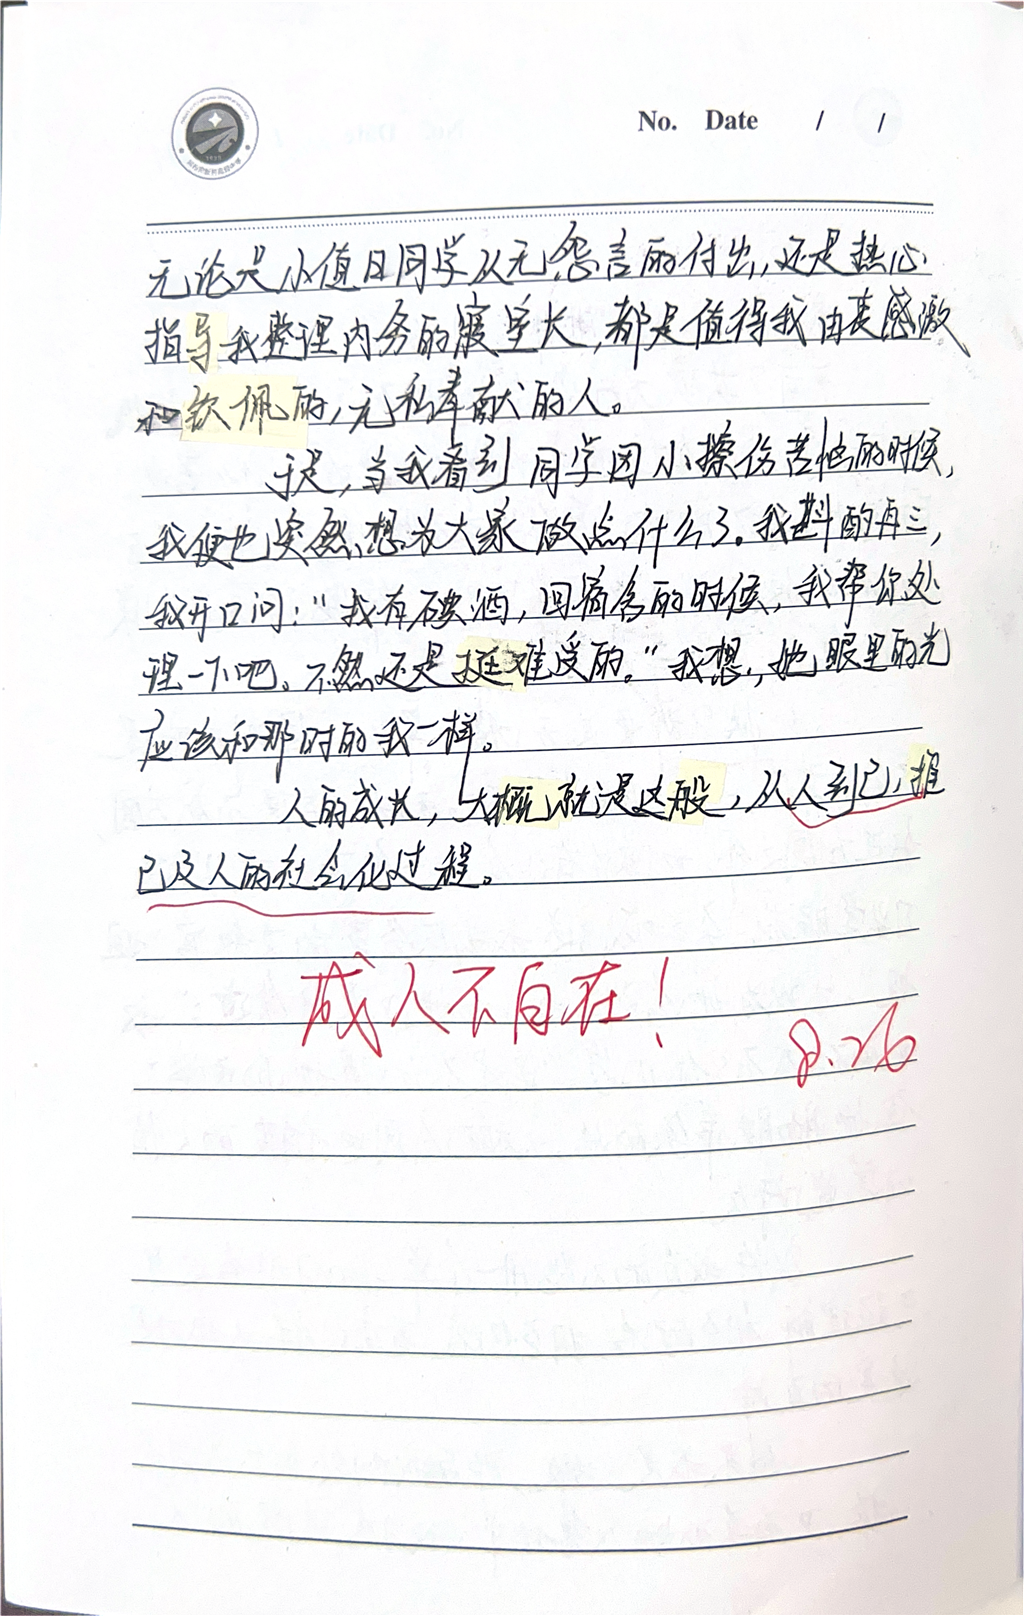 No. Date / /
无论是小值日同学从无怨言的付出,还是热心
指导我整理内务的寝室长,都是值得我由衷感激
和钦佩的,无私奉献的人。
于是,当我看到同学因小擦伤苦恼的时候,
我便也突然想为大家做点什么了。我斟酌再三,
我开口问:"我有碘酒,回宿舍的时候,我帮你处
理一下吧。不然还是挺难受的。"我想,她眼里的光
应该和那时的我一样。
人的成长,大概就是这般,从人到己,推
己及人的社会化过程。
成人不自在!
8.26